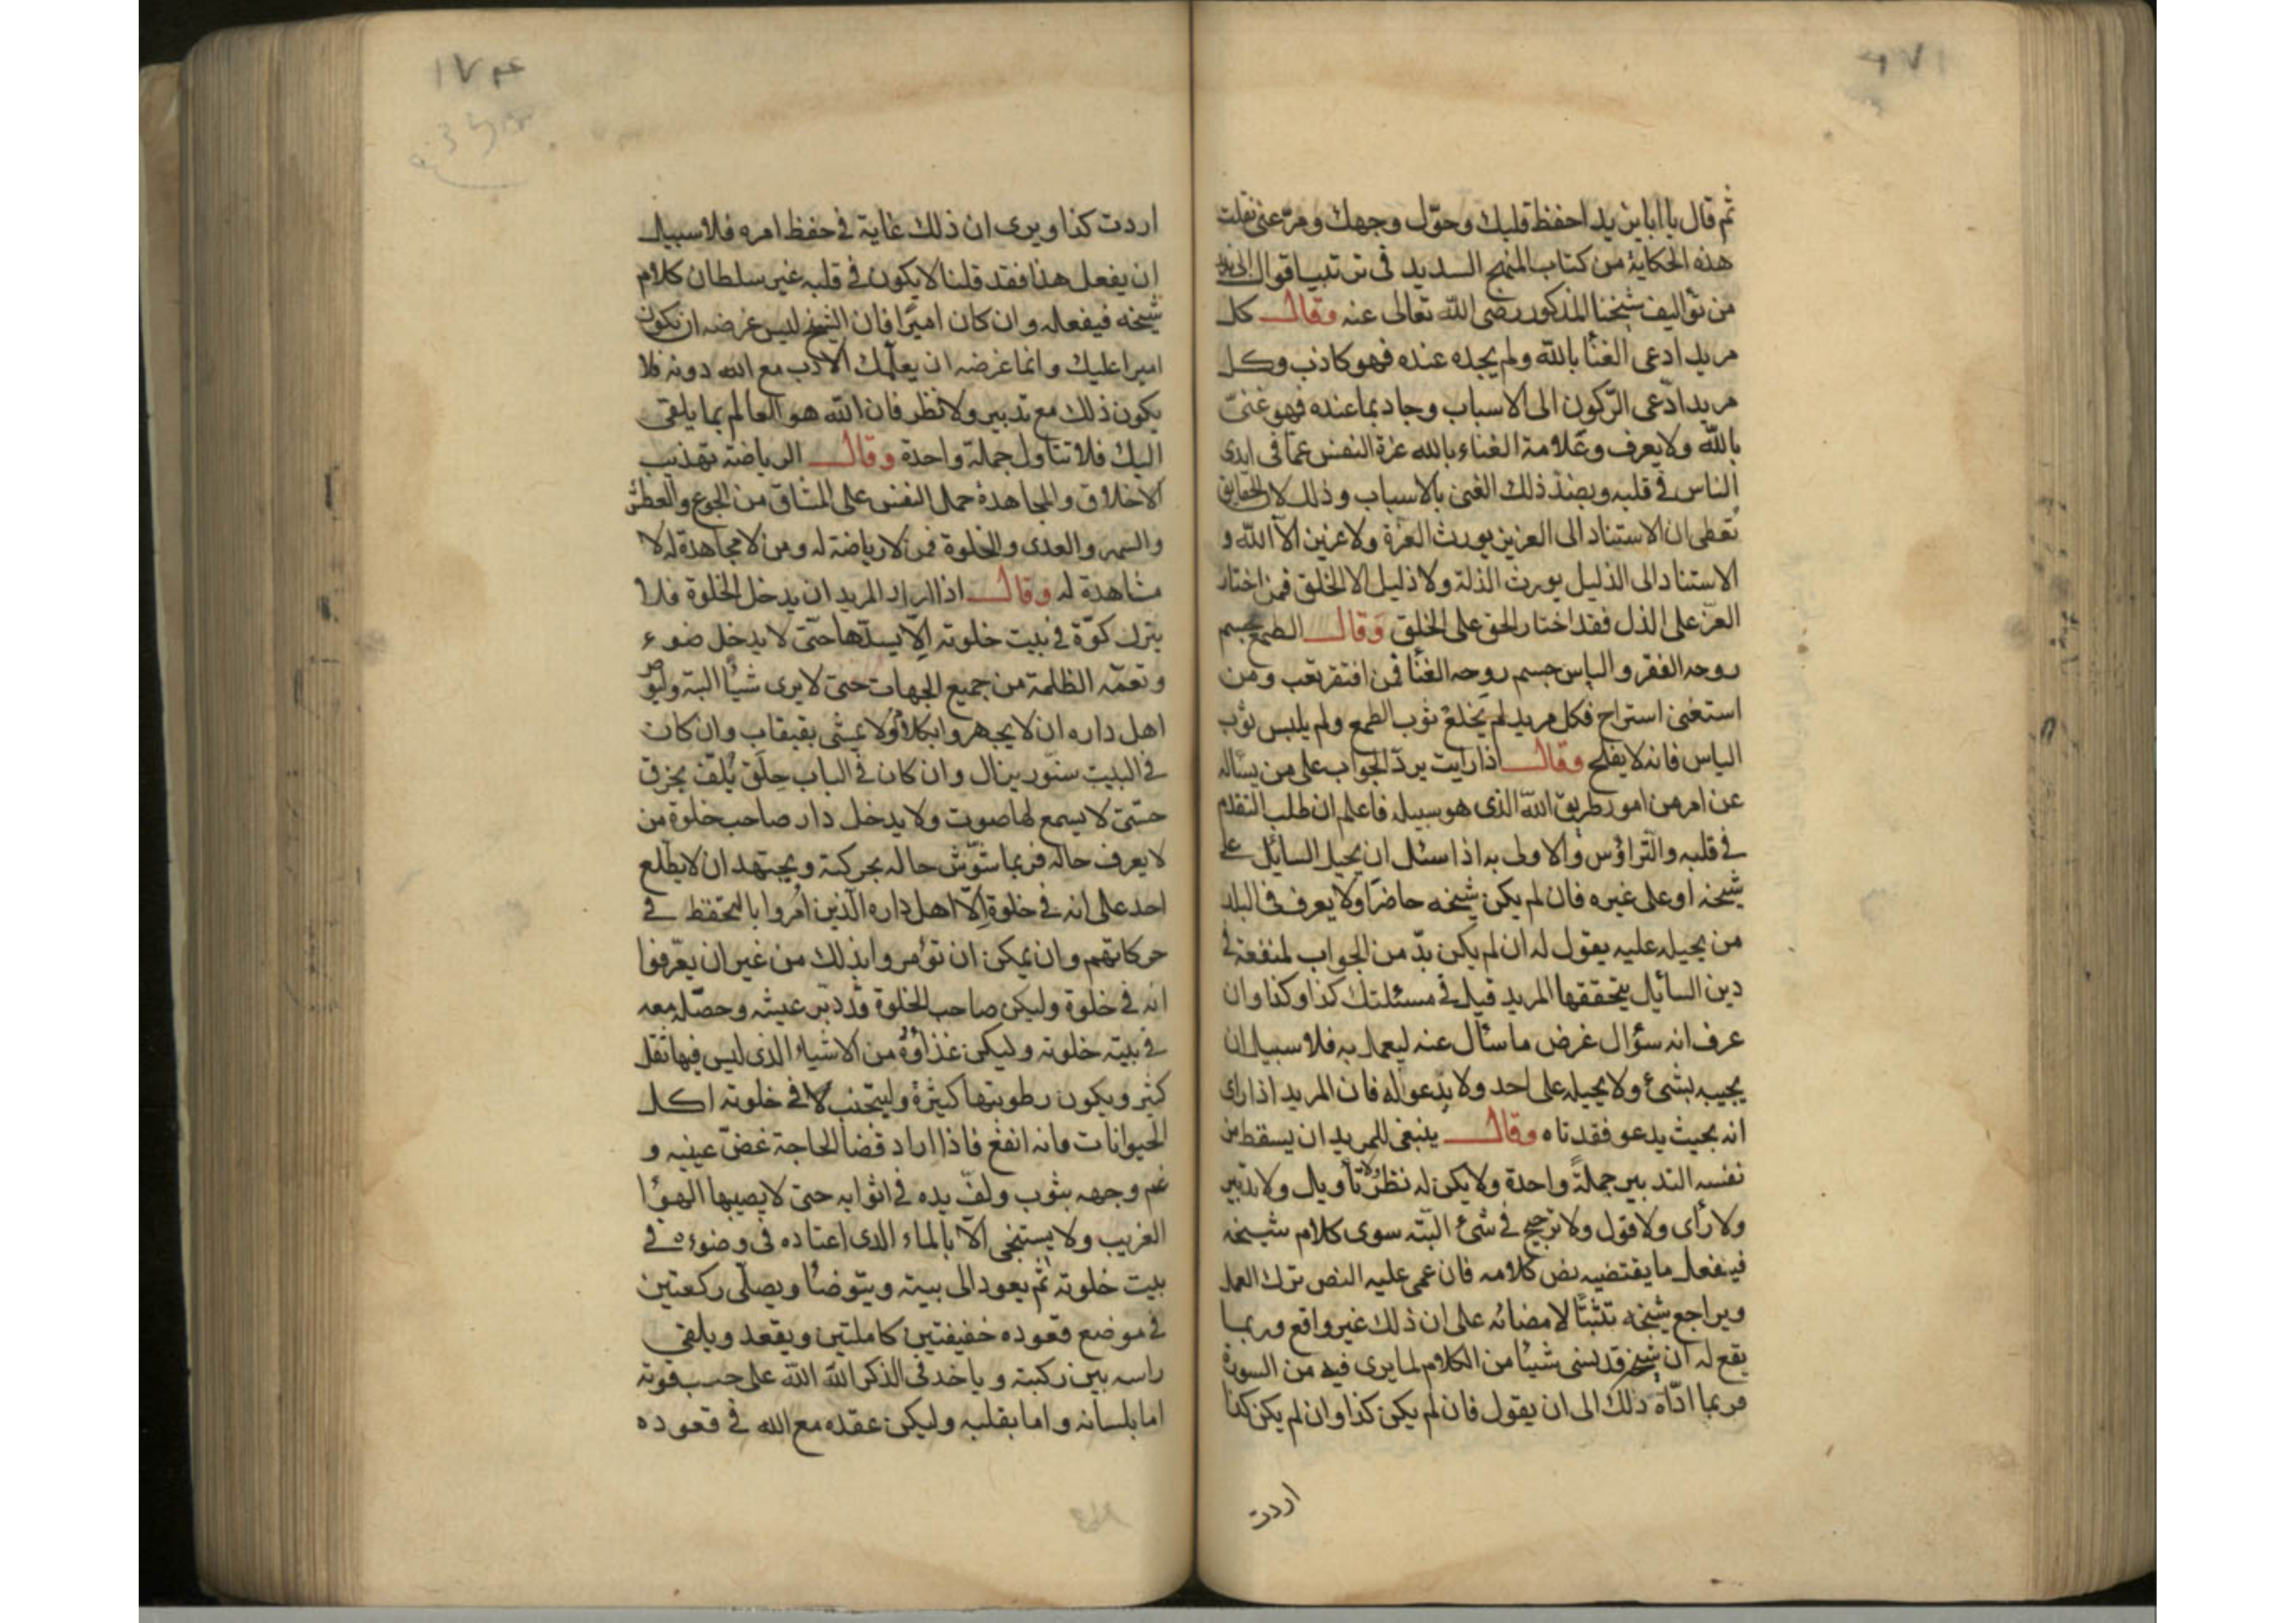 ثم قال يا ابا يزيد احفظ قلبك وحوّل وجهك ومرّ عنى نقلت
هذه الحكاية من كتاب المنهج السديد فى ترتيب اقوال ابى يزيد
من تواليف شيخنا المذكور رضى الله تعالى عنه وقال كل
مريد ادعى الغنا بالله ولم يجده عنده فهو كاذب وكل
مريد ادّعى الرّكون الى الاسباب وجاد بما عنده فهو غنىّ
بالله ولا يعرف وعلامة الغناء بالله عزة النفس عمّا فى ايدى
الناس فى قلبه وبضدّ ذلك الغنى بالاسباب وذلك لان الحقايق
تعطى ان الاستناد الى العزيز يورث العزّة ولا عزيز الا الله و
الاستناد الى الذليل يورث الذلة ولا ذليل الا الخلق فمن اختار
العزّ على الذل فقد اختار الحق على الخلق وقال الطمع جسم
روحه الفقر والياس جسم روحه الغنا فمن افتقر تعب ومن
استغنى استراح فكل مريد لم يخلع ثوب الطمع ولم يلبس ثوب
الياس فانه لا يفلح وقال اذا رايت يردّ الجواب على من يساله
عن امر من امور طريق الله الذى هو سبيله فاعلم ان طلب التقدم
فى قلبه والتراؤس والاولى به اذا سئل ان يحيل السايل على
شيخه او على غيره فان لم يكن شيخه حاضرا ولا يعرف فى البلد
من يحيله عليه يقول له ان لم يكن بدّ من الجواب لمنفعة فى
دين السايل يتحققها المريد قيل فى مسئلتك كذا وكذا وان
عرف انه سؤال غرض ما سأل عنه ليعمل به فلا سبيل ان
يجيبه بشئ ولا يحيله على احد ولا يدعو له فان المريد اذا راى
انه بحيث يدعو فقد تاه وقال ينبغى للمريد ان يسقط من
نفسه التدبير جملةً واحدة ولا يكن له نظر ولا تأويل ولا تدبير
ولا رأى ولا قول ولا ترجيح فى شئ البتّه سوى كلام شيخه
فيفعل ما يقتضيه نص كلامه فان عمى عليه النص ترك العمل
ويراجع شيخه تثبتًا لامضائه على ان ذلك غير واقع وربما
يقع له ان شيخه قد نسى شيئا من الكلام لما يرى فيه من السورة
فربما ادّاه ذلك الى ان يقول فان لم يكن كذا وان لم يكن كذا
اردت
١٧٤
اردت كذا ويرى ان ذلك غاية فى حفظ امره فلا سبيل
ان يفعل هذا فقد قلنا لا يكون فى قلبه غير سلطان كلام
شيخه فيفعله وان كان اميًرا فان الشيخ ليس غرضه ان يكون
اميرا عليك وانما غرضه ان يعلّمك الادب مع الله دونه فلا
يكون ذلك مع تدبير ولا نظر فان الله هو العالم بما يلقى
اليك فلا تتاول جملة واحدة وقال الرياضة تهذيب
الاخلاق والمجاهدة حمل النفس على المشاق من الجوع والعطش
والسهر والعدى والخلوة فمن لا رياضة له ومن لا مجاهدة له لا
مشاهدة له وقال اذا اراد المريد ان يدخل الخلوة فلا
يترك كوّة فى بيت خلوته الّا يسدّها حتّى لا يدخل ضوء
وتعمّه الظلمة من جميع الجهات حتى لا يرى شيأ البتة وليوص
اهل داره ان لا يجهروا بكلام ولا يمشى بقبقاب وان كان
فى البيت سنّور يزال وان كان فى الباب حِلَق يُلفّ بخرق
حتّى لا يسمع لها صوت ولا يدخل دار صاحب خلوة من
لا يعرف حاله فربما شوّش حاله بحركته ويجتهد ان لا يطّلع
احد على انه فى خلوة اِلّا اهل داره الّذين اُمروا بالتحفظ فى
حركاتهم وان يمكن ان تؤمروا بذلك من غير ان يعّرفوا
انه فى خلوة وليكن صاحب الخلوة قد دبّر عيشه وحصّله معه
فى بيته خلوته وليكن غذاؤه من الاشياء الذى ليس فيها ثقل
كثير ويكون رطوبتها كثيرة وليتجنب فى خلوته اكل
الحيوانات فانه انفع فاذا اراد قضا الحاجة غضّ عينيه و
غم وجهه بثوب ولفّ يده فى اثوابه حتى لا يصيبها الهوا
الغريب ولا يستنجى الا بالماء الذى اعتاده فى وضوءه فى
بيت خلوته ثم يعود الى بيته ويتوضأ ويصلّى ركعتين
فى موضع قعوده خفيفتين كاملتين ويقعد ويلقى
راسه بين ركبته وياخذ فى الذكر الله الله على حسب قوته
اما بلسانه واما بقلبه وليكن عقده مع الله فى قعوده